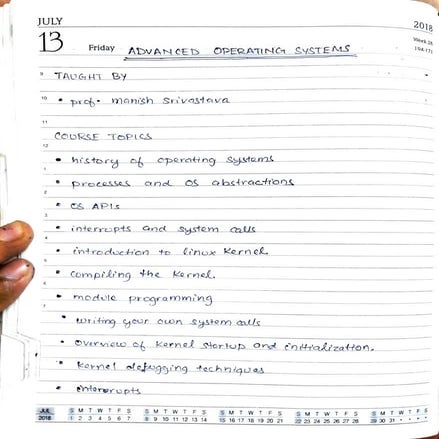 JULY
2018
13
Friday
ADVANCED OPERATING SYSTEMS
Week 28
194-171
9
TAUGHT BY
10
• prof. manish srivastava
11
COURSE TOPICS
12
• history of operating systems
• processes and OS abstractions
2
• OS APIs
3
• interrupts and system calls
4
• introduction to linux kernel
5
• compiling the kernel.
6
• module programming
• writing your own system calls
• overview of kernel startup and initialization.
• kernel debugging techniques
• interrupts
JUL S M T W T F S S M T W T F S S M T W T F S S M T W T F S S M T W T F S
2018 1 2 3 4 5 6 7 8 9 10 11 12 13 14 15 16 17 18 19 20 21 22 23 24 25 26 27 28 29 30 31